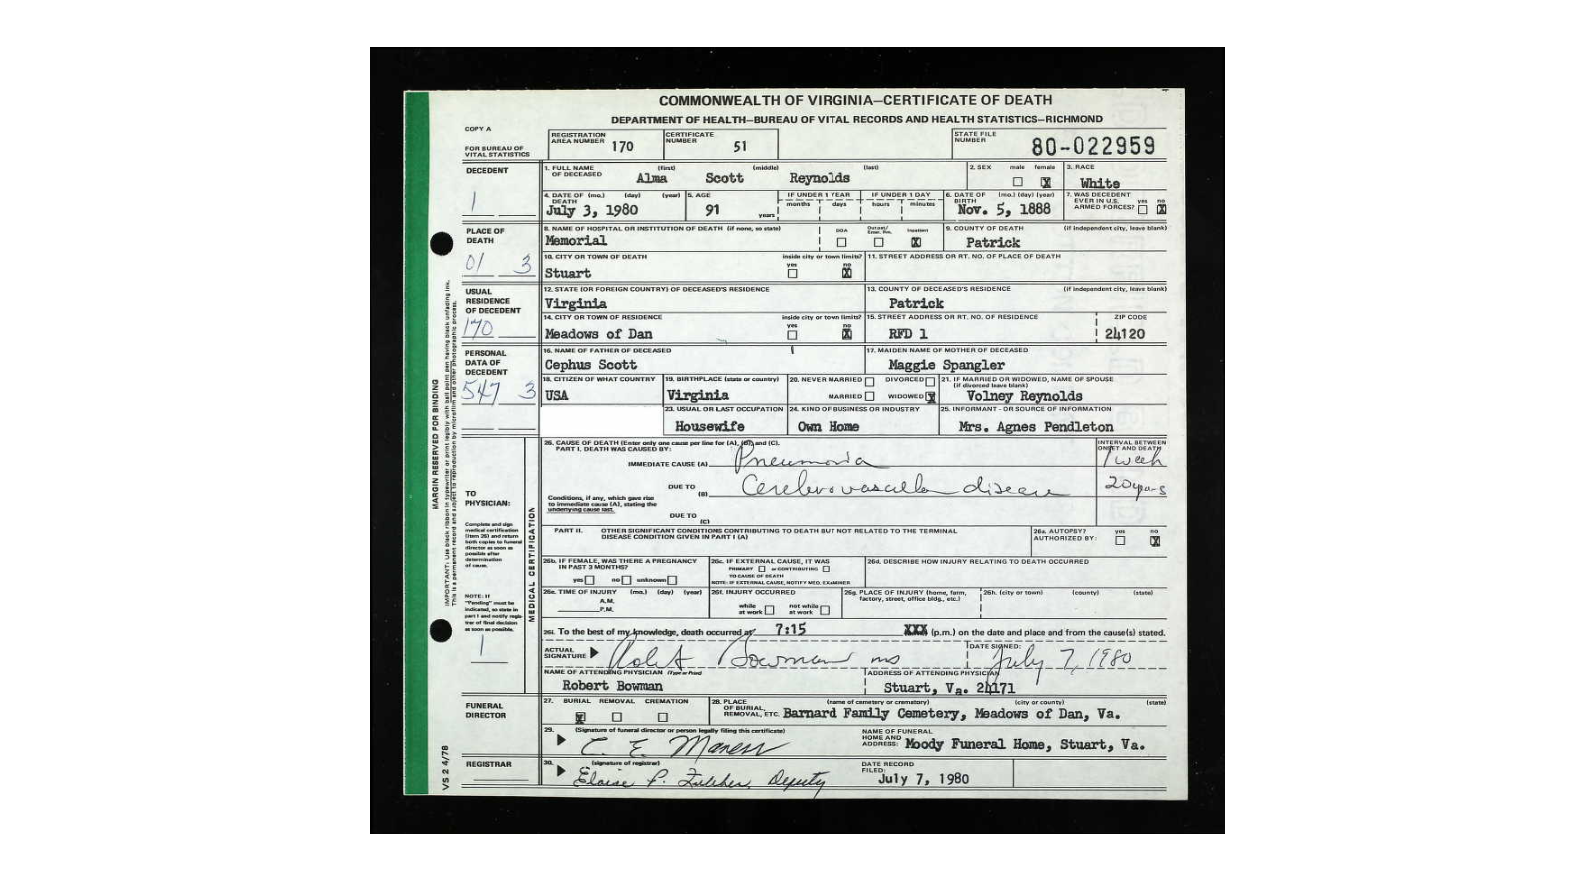 COMMONWEALTH OF VIRGINIA—CERTIFICATE OF DEATH
DEPARTMENT OF HEALTH—BUREAU OF VITAL RECORDS AND HEALTH STATISTICS—RICHMOND
COPY A
FOR BUREAU OF VITAL STATISTICS
REGISTRATION AREA NUMBER 170
CERTIFICATE NUMBER 51
STATE FILE NUMBER 80-022959
DECEDENT
1
1. FULL NAME OF DECEASED (first) (middle) (last)
Alma Scott Reynolds
2. SEX male female X
3. RACE White
4. DATE OF DEATH (mo.) (day) (year)
July 3, 1980
5. AGE 91 years
IF UNDER 1 YEAR months days
IF UNDER 1 DAY hours minutes
6. DATE OF BIRTH (mo.) (day) (year)
Nov. 5, 1888
7. WAS DECEDENT EVER IN U.S. ARMED FORCES? yes no X
PLACE OF DEATH
01 3
8. NAME OF HOSPITAL OR INSTITUTION OF DEATH (if none, so state)
Memorial
DOA Inpatient X
9. COUNTY OF DEATH (if independent city, leave blank)
Patrick
10. CITY OR TOWN OF DEATH inside city or town limits? yes no X
Stuart
11. STREET ADDRESS OR RT. NO. OF PLACE OF DEATH
USUAL RESIDENCE OF DECEDENT
170
12. STATE (OR FOREIGN COUNTRY) OF DECEASED'S RESIDENCE
Virginia
13. COUNTY OF DECEASED'S RESIDENCE (if independent city, leave blank)
Patrick
14. CITY OR TOWN OF RESIDENCE inside city or town limits? yes no X
Meadows of Dan
15. STREET ADDRESS OR RT. NO. OF RESIDENCE ZIP CODE
RFD 1 24120
PERSONAL DATA OF DECEDENT
547 3
16. NAME OF FATHER OF DECEASED
Cephus Scott
17. MAIDEN NAME OF MOTHER OF DECEASED
Maggie Spangler
18. CITIZEN OF WHAT COUNTRY
USA
19. BIRTHPLACE (state or country)
Virginia
20. NEVER MARRIED DIVORCED
MARRIED WIDOWED X
21. IF MARRIED OR WIDOWED, NAME OF SPOUSE (if divorced leave blank)
Volney Reynolds
23. USUAL OR LAST OCCUPATION
Housewife
24. KIND OF BUSINESS OR INDUSTRY
Own Home
25. INFORMANT - OR SOURCE OF INFORMATION
Mrs. Agnes Pendleton
TO PHYSICIAN:
Complete and sign medical certification (item 26) and return both copies to funeral director as soon as possible after determination of cause.
NOTE: If "Pending" must be indicated, so state in part I and notify registrar of final decision as soon as possible.
1
MEDICAL CERTIFICATION
26. CAUSE OF DEATH (Enter only one cause per line for (A), (B), and (C).
PART I. DEATH WAS CAUSED BY:
INTERVAL BETWEEN ONSET AND DEATH
IMMEDIATE CAUSE (A) Pneumonia 1 week
DUE TO (B) Cerebrovascular disease 20 years
Conditions, if any, which gave rise to immediate cause (A), stating the underlying cause last.
DUE TO (C)
PART II. OTHER SIGNIFICANT CONDITIONS CONTRIBUTING TO DEATH BUT NOT RELATED TO THE TERMINAL DISEASE CONDITION GIVEN IN PART I (A)
26a. AUTOPSY? AUTHORIZED BY: yes no X
26b. IF FEMALE, WAS THERE A PREGNANCY IN PAST 3 MONTHS?
yes no unknown
26c. IF EXTERNAL CAUSE, IT WAS
PRIMARY or CONTRIBUTING
TO CAUSE OF DEATH
NOTE: IF EXTERNAL CAUSE, NOTIFY MED. EXAMINER
26d. DESCRIBE HOW INJURY RELATING TO DEATH OCCURRED
26e. TIME OF INJURY (mo.) (day) (year)
A.M.
P.M.
26f. INJURY OCCURRED
while at work not while at work
26g. PLACE OF INJURY (home, farm, factory, street, office bldg., etc.)
26h. (city or town) (county) (state)
26i. To the best of my knowledge, death occurred at 7:15 XXX (p.m.) on the date and place and from the cause(s) stated.
ACTUAL SIGNATURE Robert Bowman MD
DATE SIGNED: July 7, 1980
NAME OF ATTENDING PHYSICIAN (Type or Print)
Robert Bowman
ADDRESS OF ATTENDING PHYSICIAN
Stuart, Va. 24171
FUNERAL DIRECTOR
27. BURIAL REMOVAL CREMATION
X
28. PLACE OF BURIAL, REMOVAL, ETC. (name of cemetery or crematory) (city or county) (state)
Barnard Family Cemetery, Meadows of Dan, Va.
29. (Signature of funeral director or person legally filing this certificate)
C. E. Maness
NAME OF FUNERAL HOME AND ADDRESS: Moody Funeral Home, Stuart, Va.
REGISTRAR
30. (signature of registrar)
Eloise P. Deputy
DATE RECORD FILED:
July 7, 1980
MARGIN RESERVED FOR BINDING
VS 2 4/78